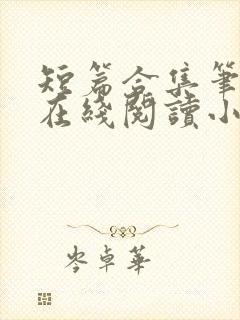 短篇合集筆
在綫閱讀小
岑卓華